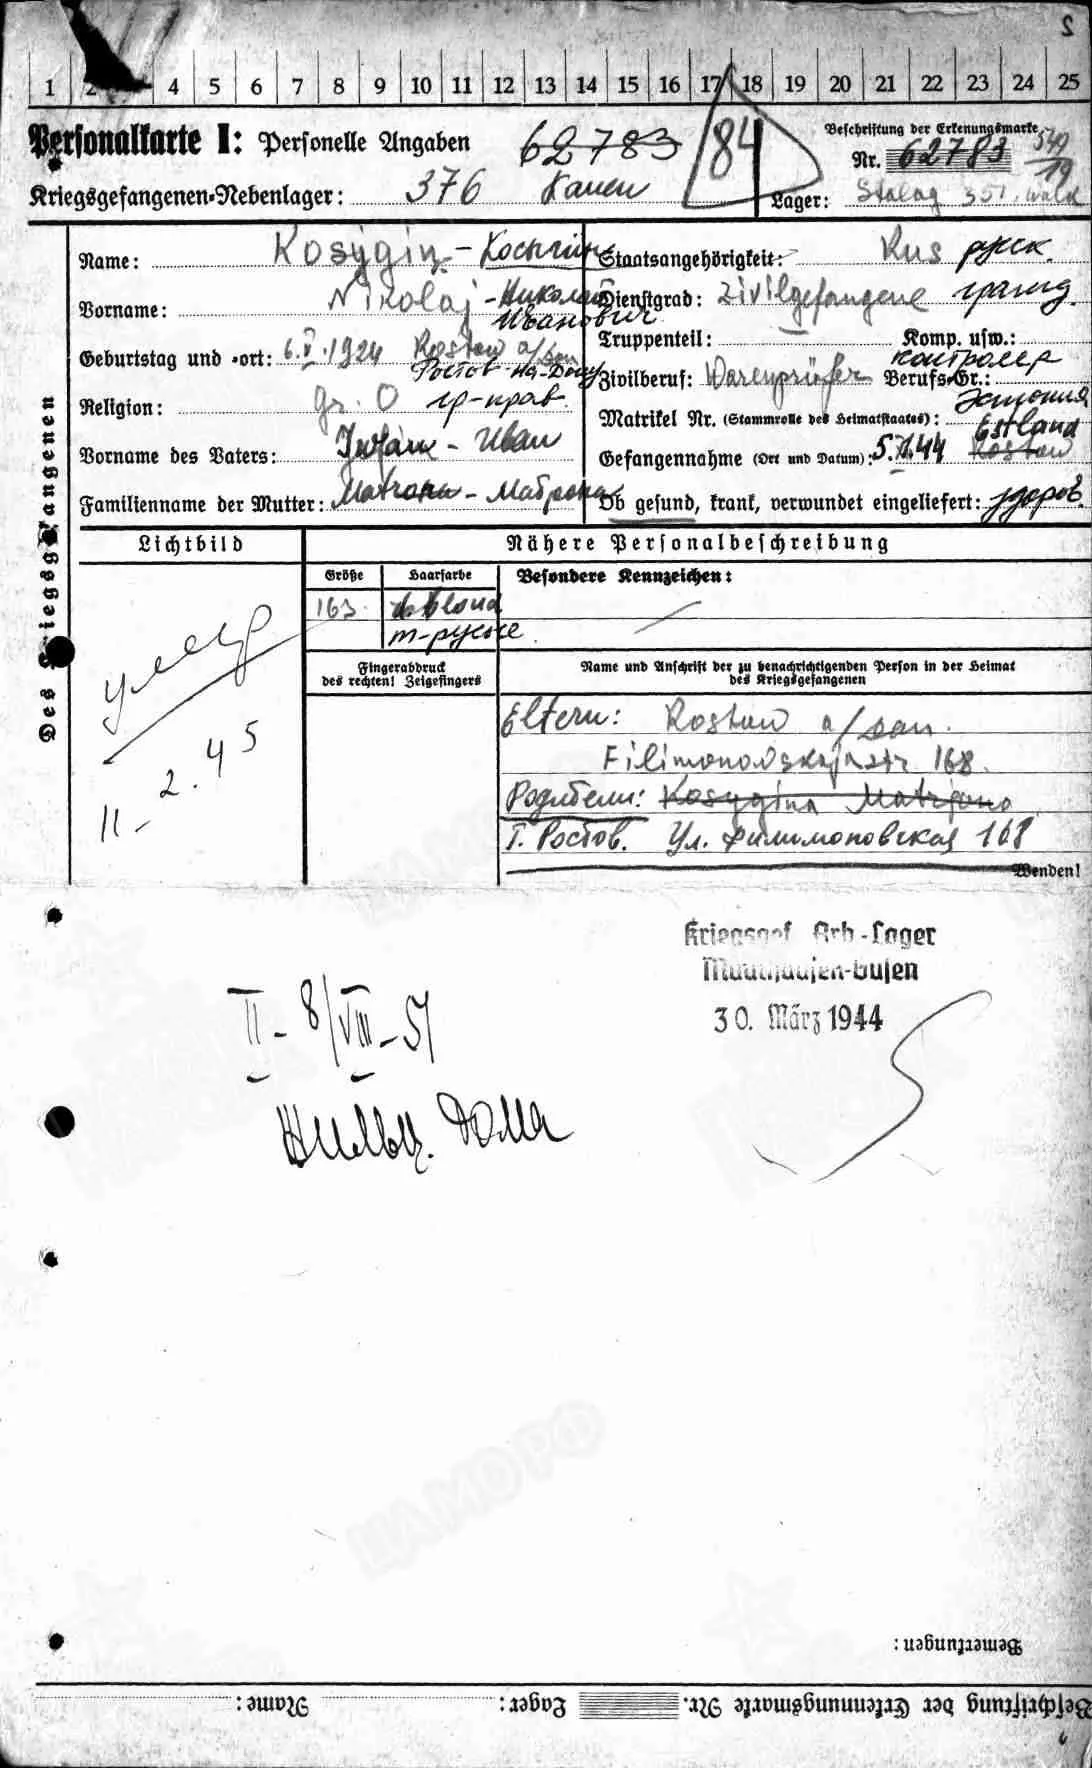 2
1 2 4 5 6 7 8 9 10 11 12 13 14 15 16 17 18 19 20 21 22 23 24 25
Personalkarte I: Personelle Angaben
62783
84
Beschriftung der Erkennungsmarke
Nr. 62783
Kriegsgefangenen-Nebenlager: 376
Lager: Stalag
Des Kriegsgefangenen
Name: Kosygin - Косыгин
Vorname: Nikolaj - Николай
Иванович
Geburtstag und -ort: 6.V.1924 Rostow a/Don
Ростов-на-Дону
Religion: gr. O гр-прав.
Vorname des Vaters: Iwan - Иван
Familienname der Mutter: - Маврона
Staatsangehörigkeit: Rus русск.
Dienstgrad: Zivilgefangene гражд.
Truppenteil: Komp. usw.:
контролер
Zivilberuf: Warenprüfer Berufs-Gr.:
Эстония
Matrikel Nr. (Stammrolle des Heimatstaates):
Estland
Gefangennahme (Ort und Datum): Rostow
Ob gesund, krank, verwundet eingeliefert: здоров.
Lichtbild
умер
11-2.45
Nähere Personalbeschreibung
Größe Haarfarbe Besondere Kennzeichen:
163 d. blond
т-русые
Fingerabdruck
des rechten! Zeigefingers
Name und Anschrift der zu benachrichtigenden Person in der Heimat
des Kriegsgefangenen
Eltern: Rostow a/Don.
Filimonowskaja str 168.
Родители: Kosygina Matrjona
Г. Ростов. Ул. Филимоновская 168
Wenden!
Kriegsgef. Arb.-Lager
Mauthausen-Gusen
30. März 1944
II - 8/VIII - 51
дома
ЦАМО РФ
Bemerkungen:
Beschriftung der Erkennungsmarke Nr. Lager: Name: